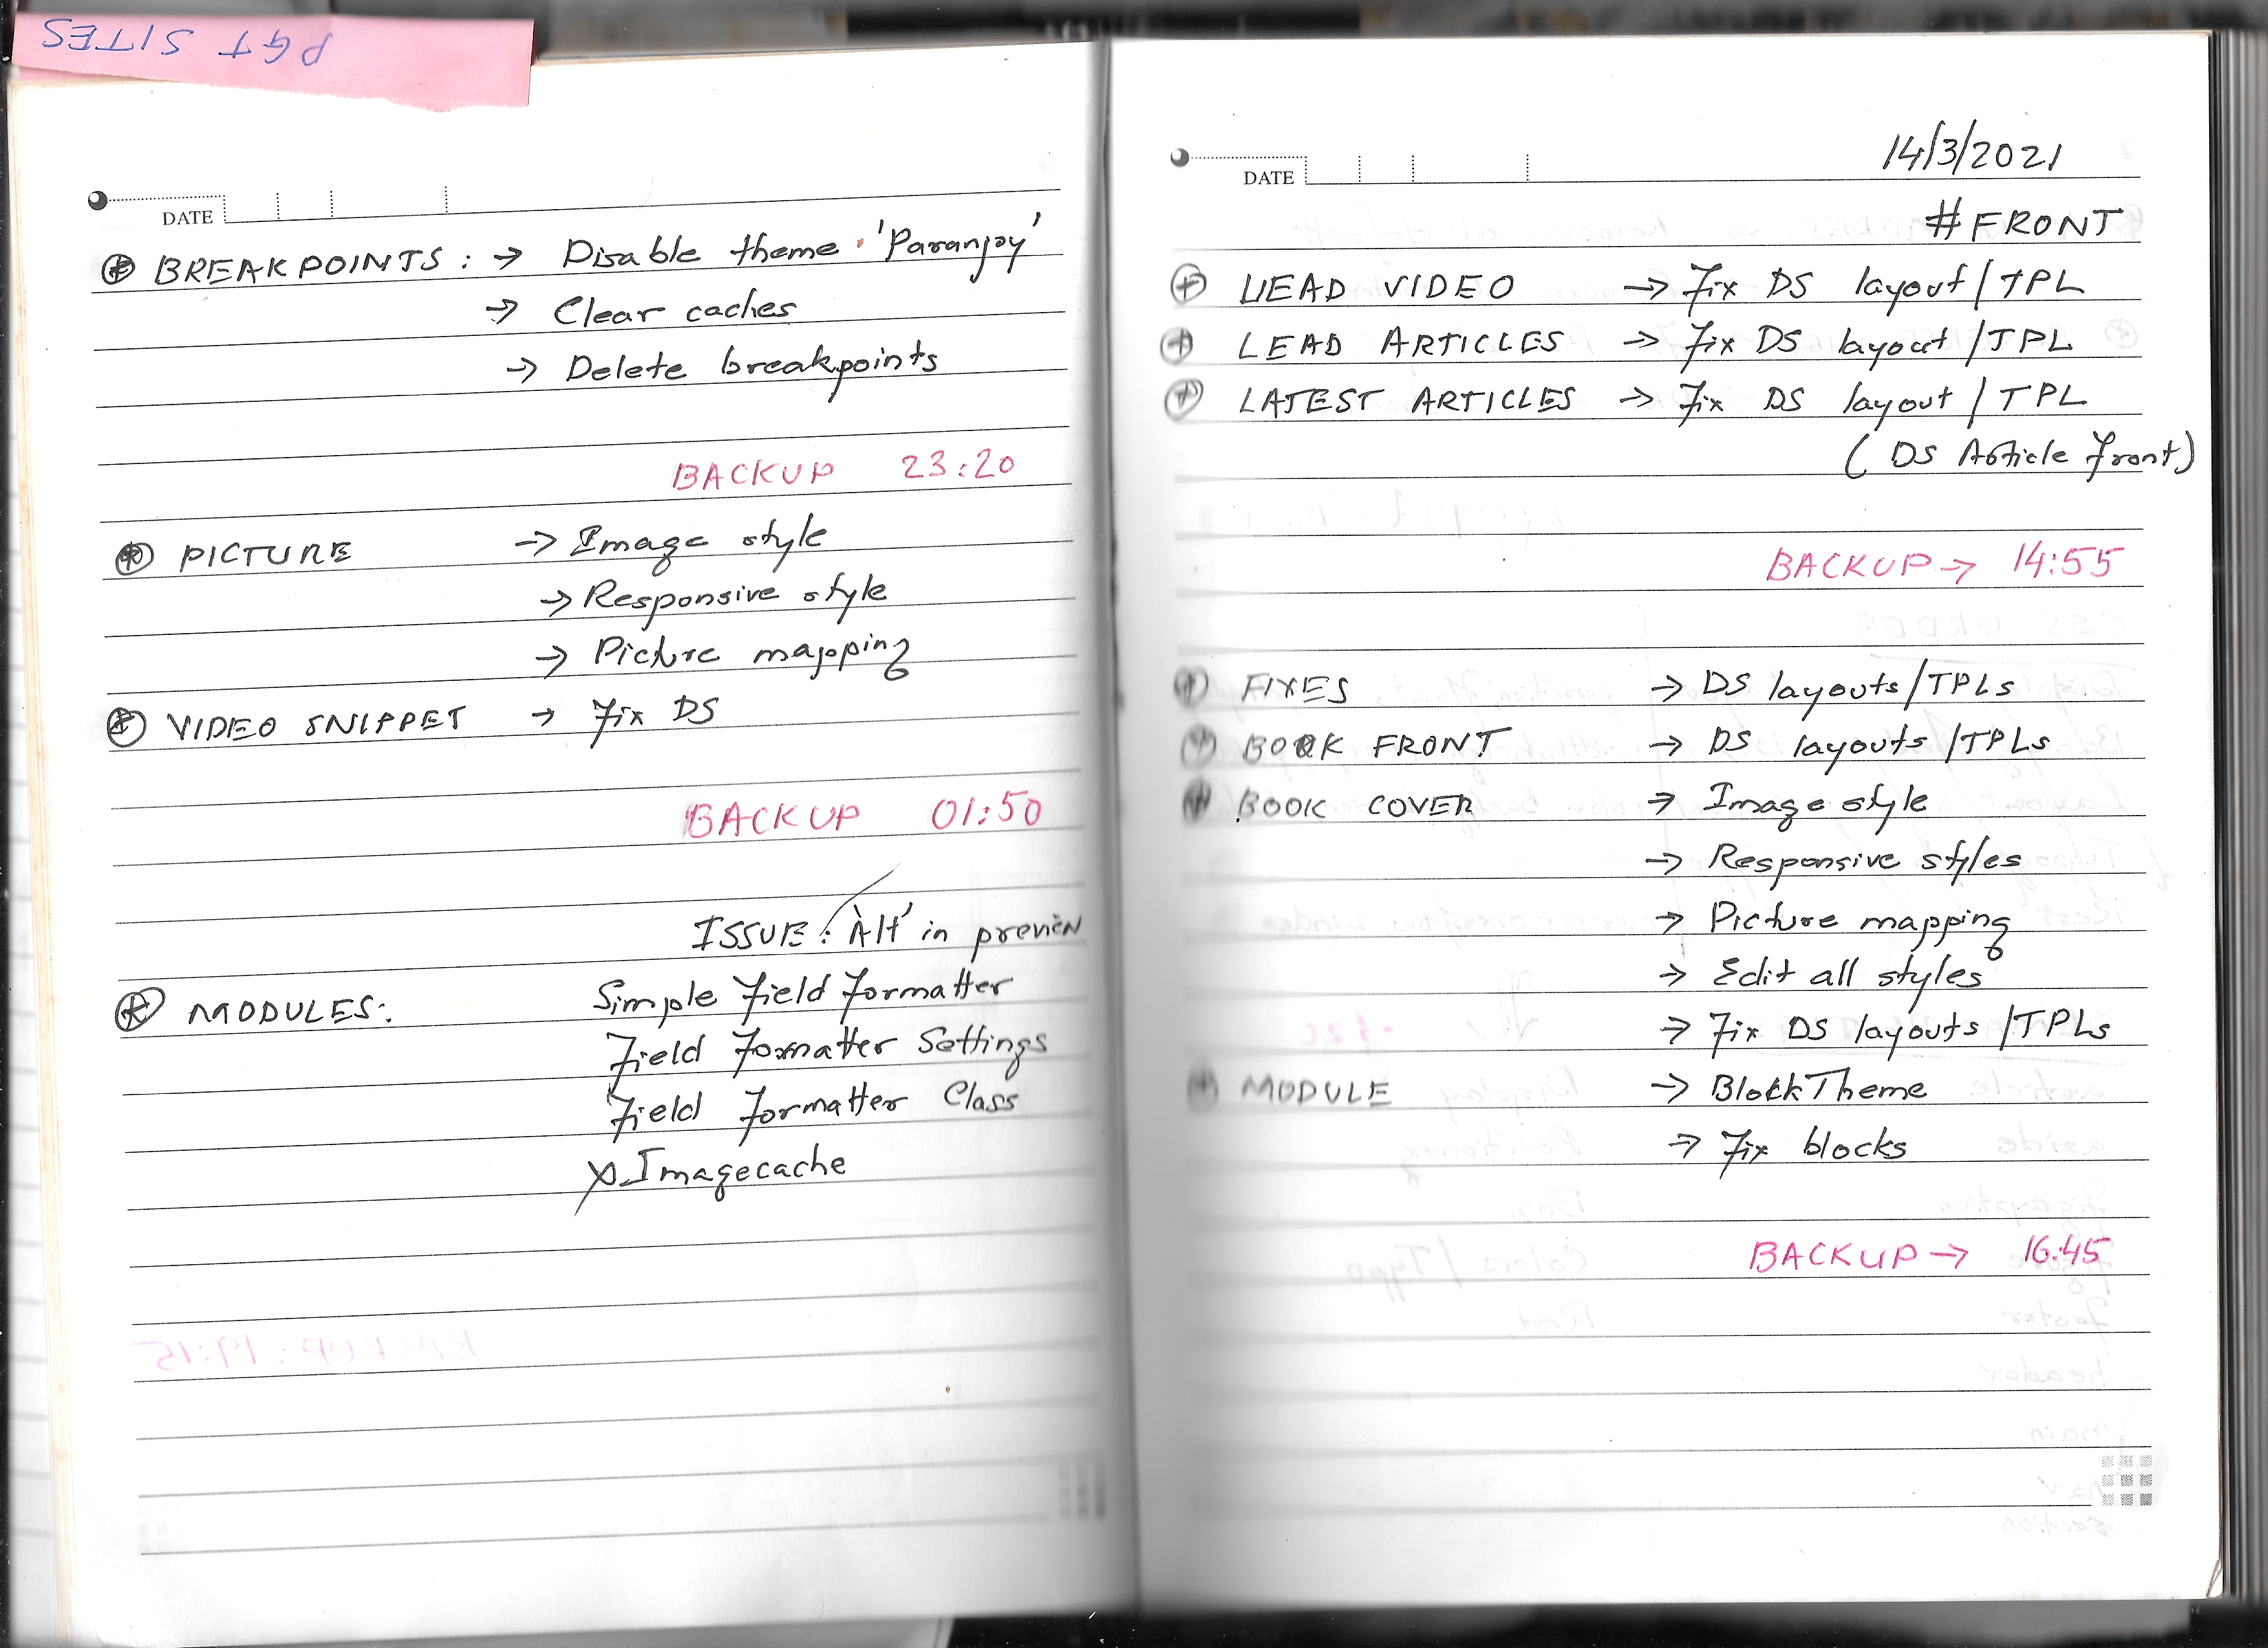 PGT SITES
DATE
BREAKPOINTS : → Disable theme 'Paranjoy'
→ Clear caches
→ Delete breakpoints
BACKUP 23:20
PICTURE → Image style
→ Responsive style
→ Picture mapping
VIDEO SNIPPET → Fix DS
BACKUP 01:50
ISSUE : 'Alt' in preview
MODULES: Simple Field Formatter
Field Formatter Settings
Field Formatter Class
Imagecache
14/3/2021
DATE
#FRONT
LEAD VIDEO → Fix DS layout/TPL
LEAD ARTICLES → Fix DS layout/TPL
LATEST ARTICLES → Fix DS layout/TPL
(DS Article Front)
BACKUP → 14:55
FIXES → DS layouts/TPLs
BOOK FRONT → DS layouts/TPLs
BOOK COVER → Image style
→ Responsive styles
→ Picture mapping
→ Edit all styles
→ Fix DS layouts/TPLs
MODULE → BlockTheme
→ Fix blocks
BACKUP → 16:45